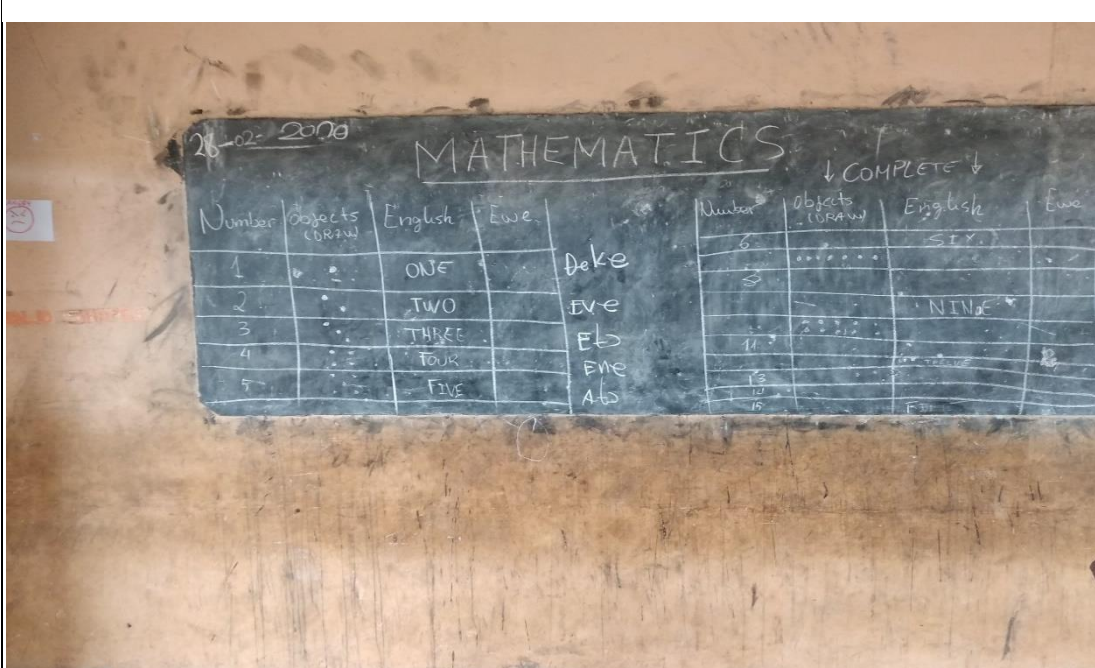 28-02-2020
MATHEMATICS
Number Objects (DRAW) English Ewe
1 ONE Deke
2 TWO Eve
3 THREE Etɔ
4 FOUR Ene
5 FIVE Atɔ
↓ COMPLETE ↓
Number Objects (DRAW) English Ewe
6 SIX
8
NINE
11
13
15